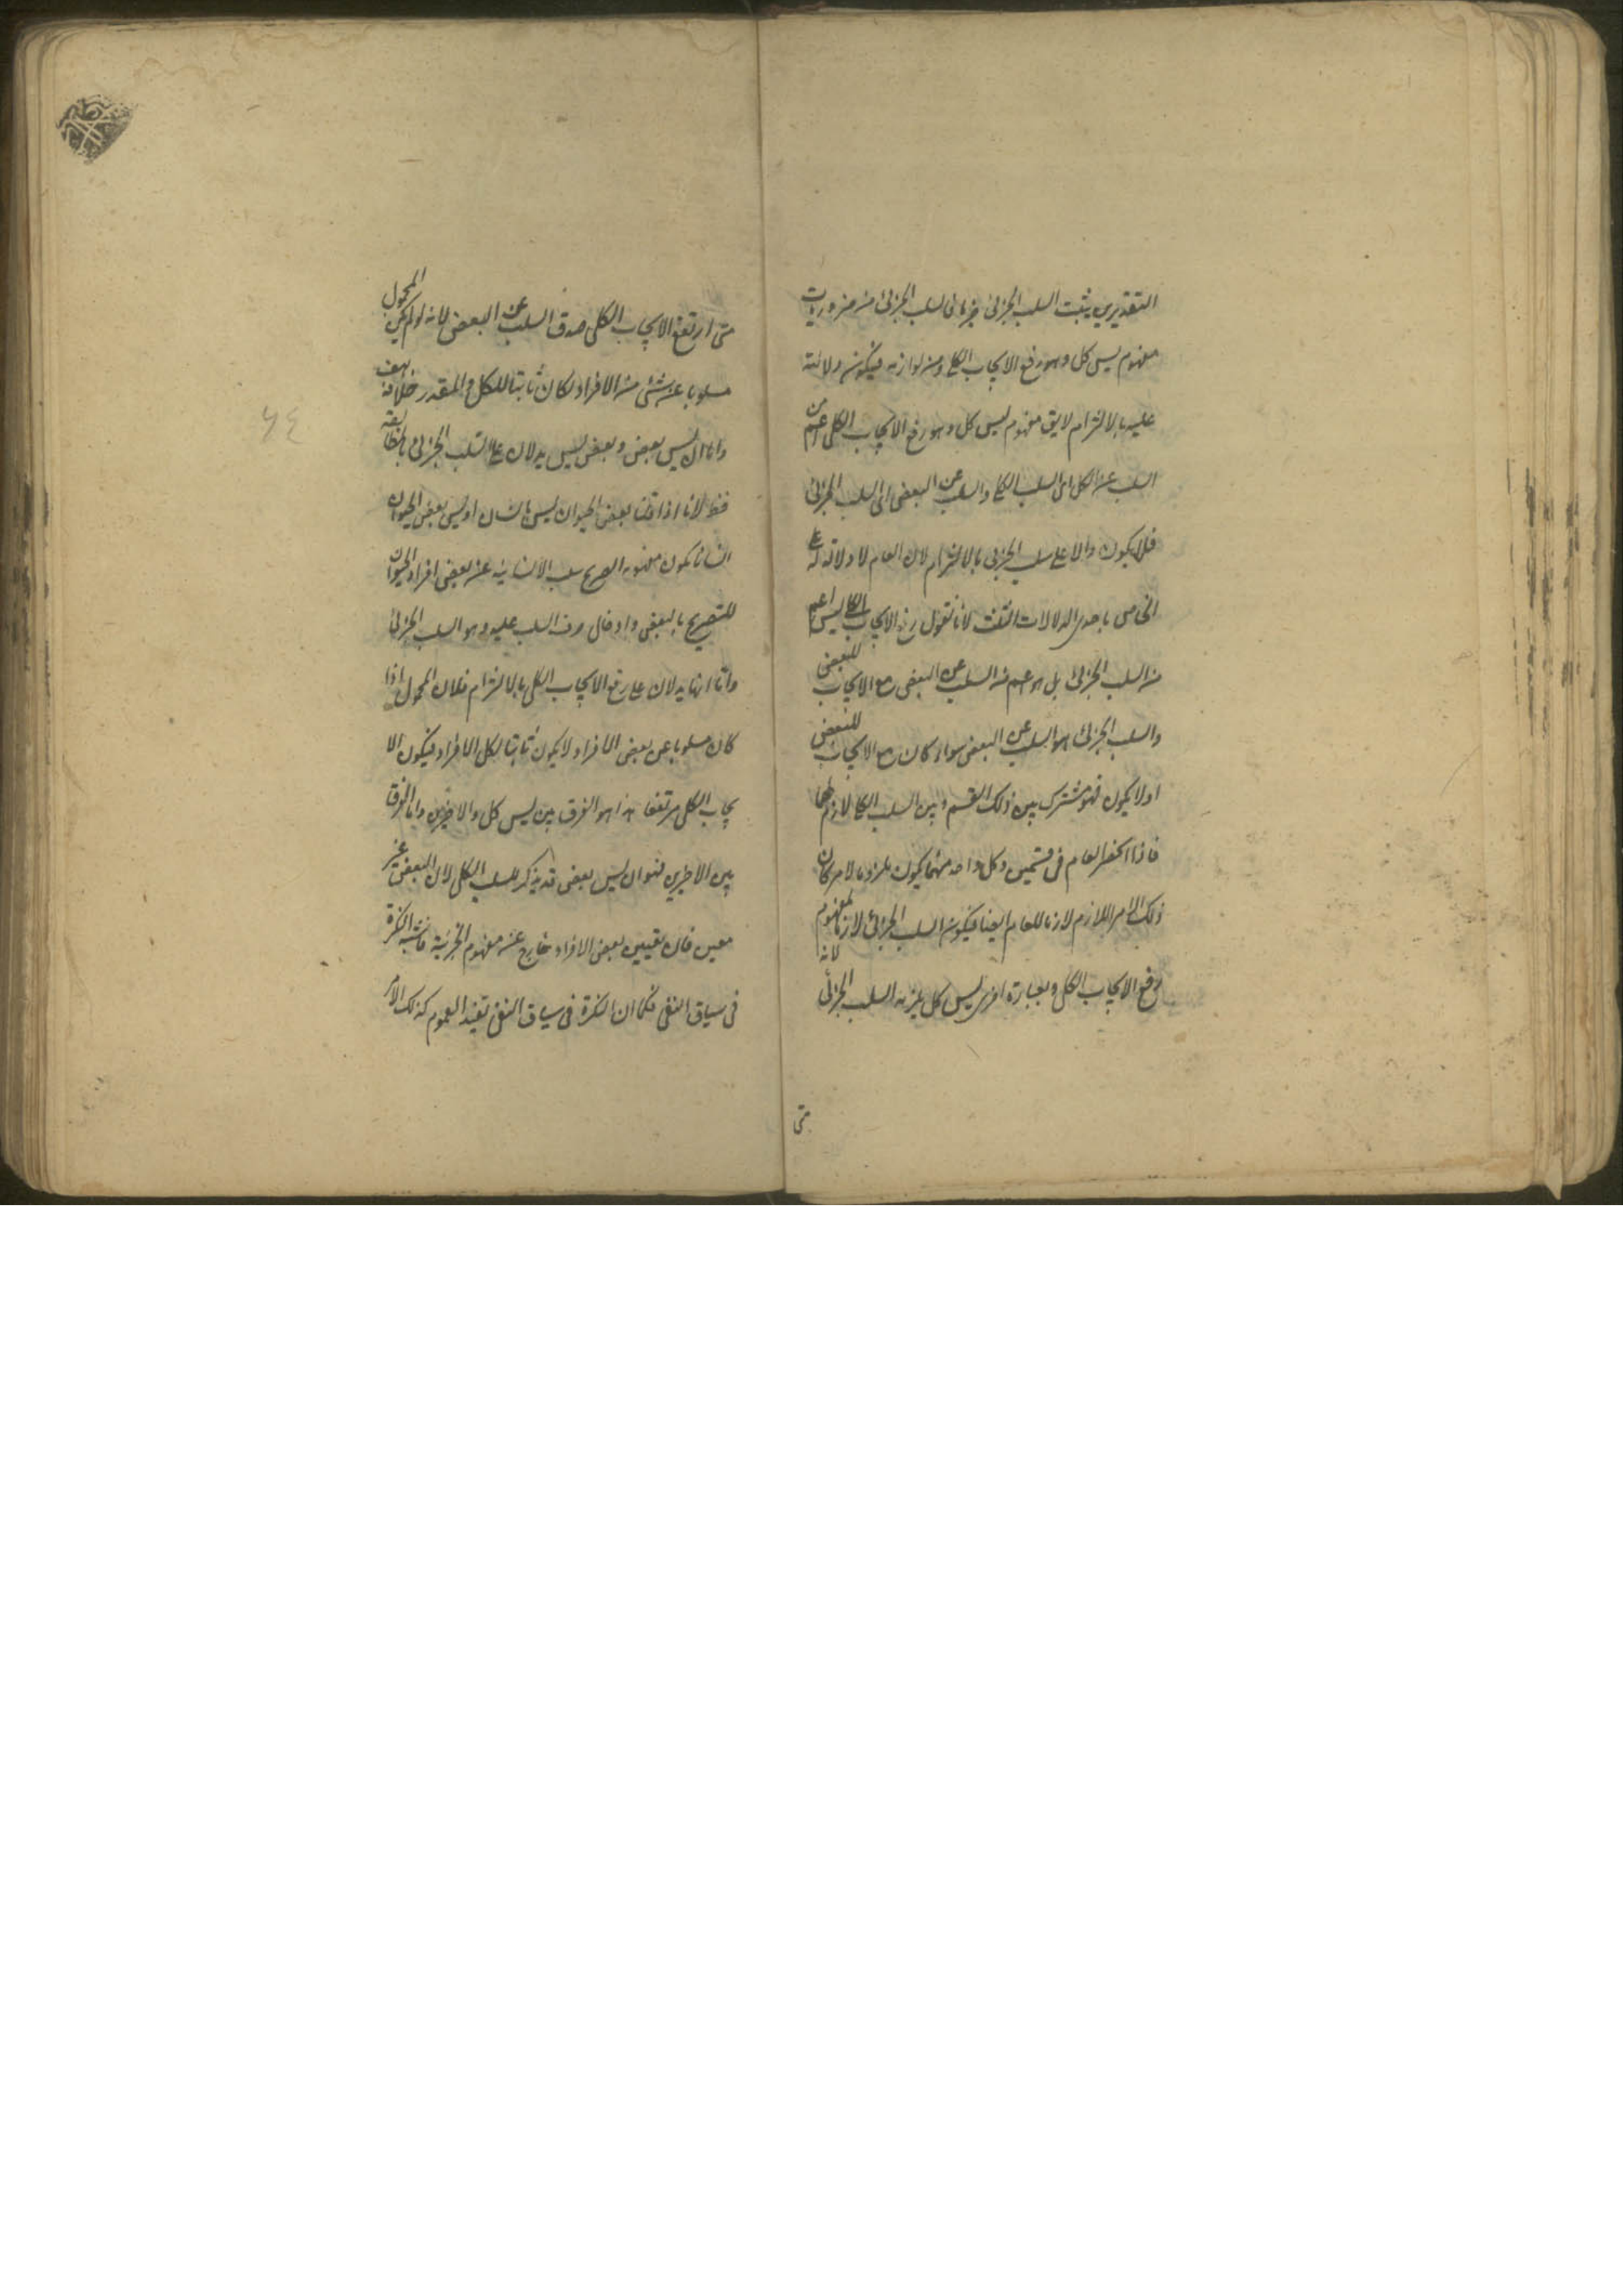 التقديرين يثبت السلب الجزئى جزما فالسلب الجزئى من ضروريات
مفهوم ليس كل وهو رفع الايجاب الكلى ومن لوازمه فيكون دلالته
عليه بالالتزام لايق مفهوم ليس كل وهو رفع الايجاب الكلى اعم من
السلب عن الكل اى السلب الكلى والسلب عن البعض اى السلب الجزئى
فلا يكون دالا على سلب الجزئى بالالتزام لان العام لا دلالة له على
الخاص باحدى الدلالات الثلث لانا نقول رفع الايجاب الكلى ليس اعم
من السلب الجزئى بل هو اعم من السلب عن البعض مع الايجاب للبعض
والسلب الجزئى هو السلب عن البعض سواء كان مع الايجاب للبعض
اولا يكون فهو مشترك بين ذلك القسم وبين السلب الكلى لازم لهما
فاذا انحصر العام فى قسمين وكل واحد منهما يكون ملزوما لامر كان
ذلك الامر اللازم لازما للعام ايضا فيكون السلب الجزئى لازما لمفهوم
رفع الايجاب الكلى وبعبارة اخرى ليس كل يلزمه السلب الجزئى لانه
متى
متى ارتفع الايجاب الكلى صدق السلب عن البعض لانه لو لم يكن المحمول
مسلوبا عن شئ من الافراد لكان ثابتا للكل والمقدر خلافه هف
واما ان ليس بعض وبعض ليس يدلان على السلب الجزئى بالمطابقة
فظ لانا اذا قلنا بعض الحيوان ليس بانسان او ليس بعض الحيوان
انسانا يكون مفهومه الصريح سلب الانسانية عن بعض افراد الحيوان
للتصريح بالبعض وادخال حرف السلب عليه وهو السلب الجزئى
واما انهما يدلان على رفع الايجاب الكلى بالالتزام فلان المحمول اذا
كان مسلوبا عن بعض الافراد لا يكون ثابتا لكل الافراد فيكون الا
يجاب الكلى مرتفعا هذا هو الفرق بين ليس كل والاخيرين واما الفرق
بين الاخيرين فهو ان ليس بعض قد يذكر للسلب الكلى لان البعض غير
معين فان تعيين بعض الافراد خارج عن مفهوم الجزئية فاشبه النكرة
فى سياق النفى فكما ان النكرة فى سياق النفى تفيد العموم كذلك
٦٤